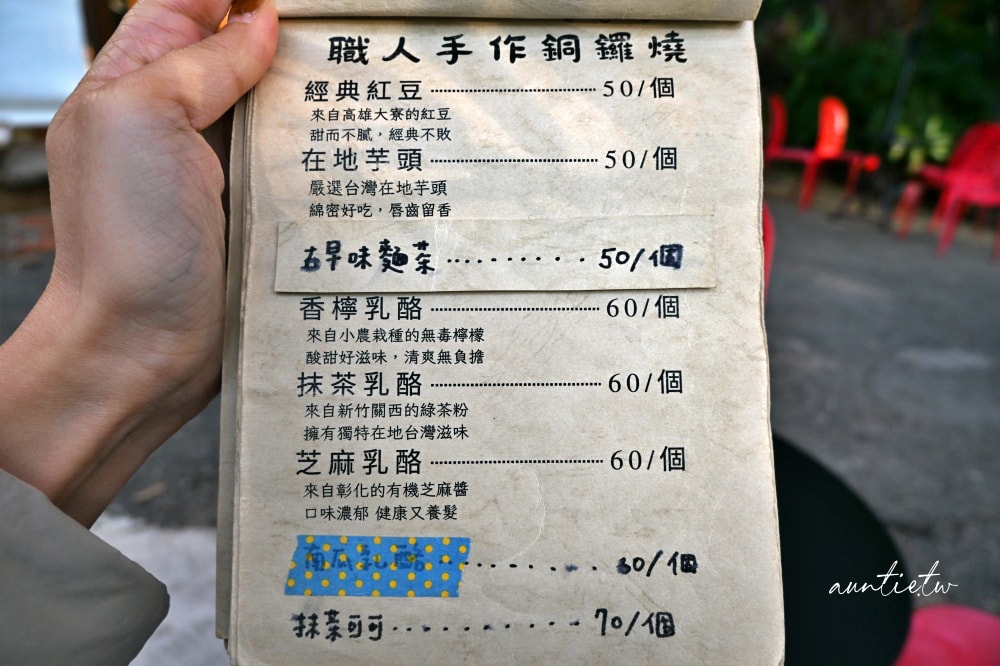 職人手作銅鑼燒
經典紅豆 50/個
來自高雄大寮的紅豆
甜而不膩,經典不敗
在地芋頭 50/個
嚴選台灣在地芋頭
綿密好吃,唇齒留香
古早味麵茶 50/個
香檸乳酪 60/個
來自小農栽種的無毒檸檬
酸甜好滋味,清爽無負擔
抹茶乳酪 60/個
來自新竹關西的綠茶粉
擁有獨特在地台灣滋味
芝麻乳酪 60/個
來自彰化的有機芝麻醬
口味濃郁 健康又養髮
南瓜乳酪 60/個
抹茶可可 70/個
auntie.tw